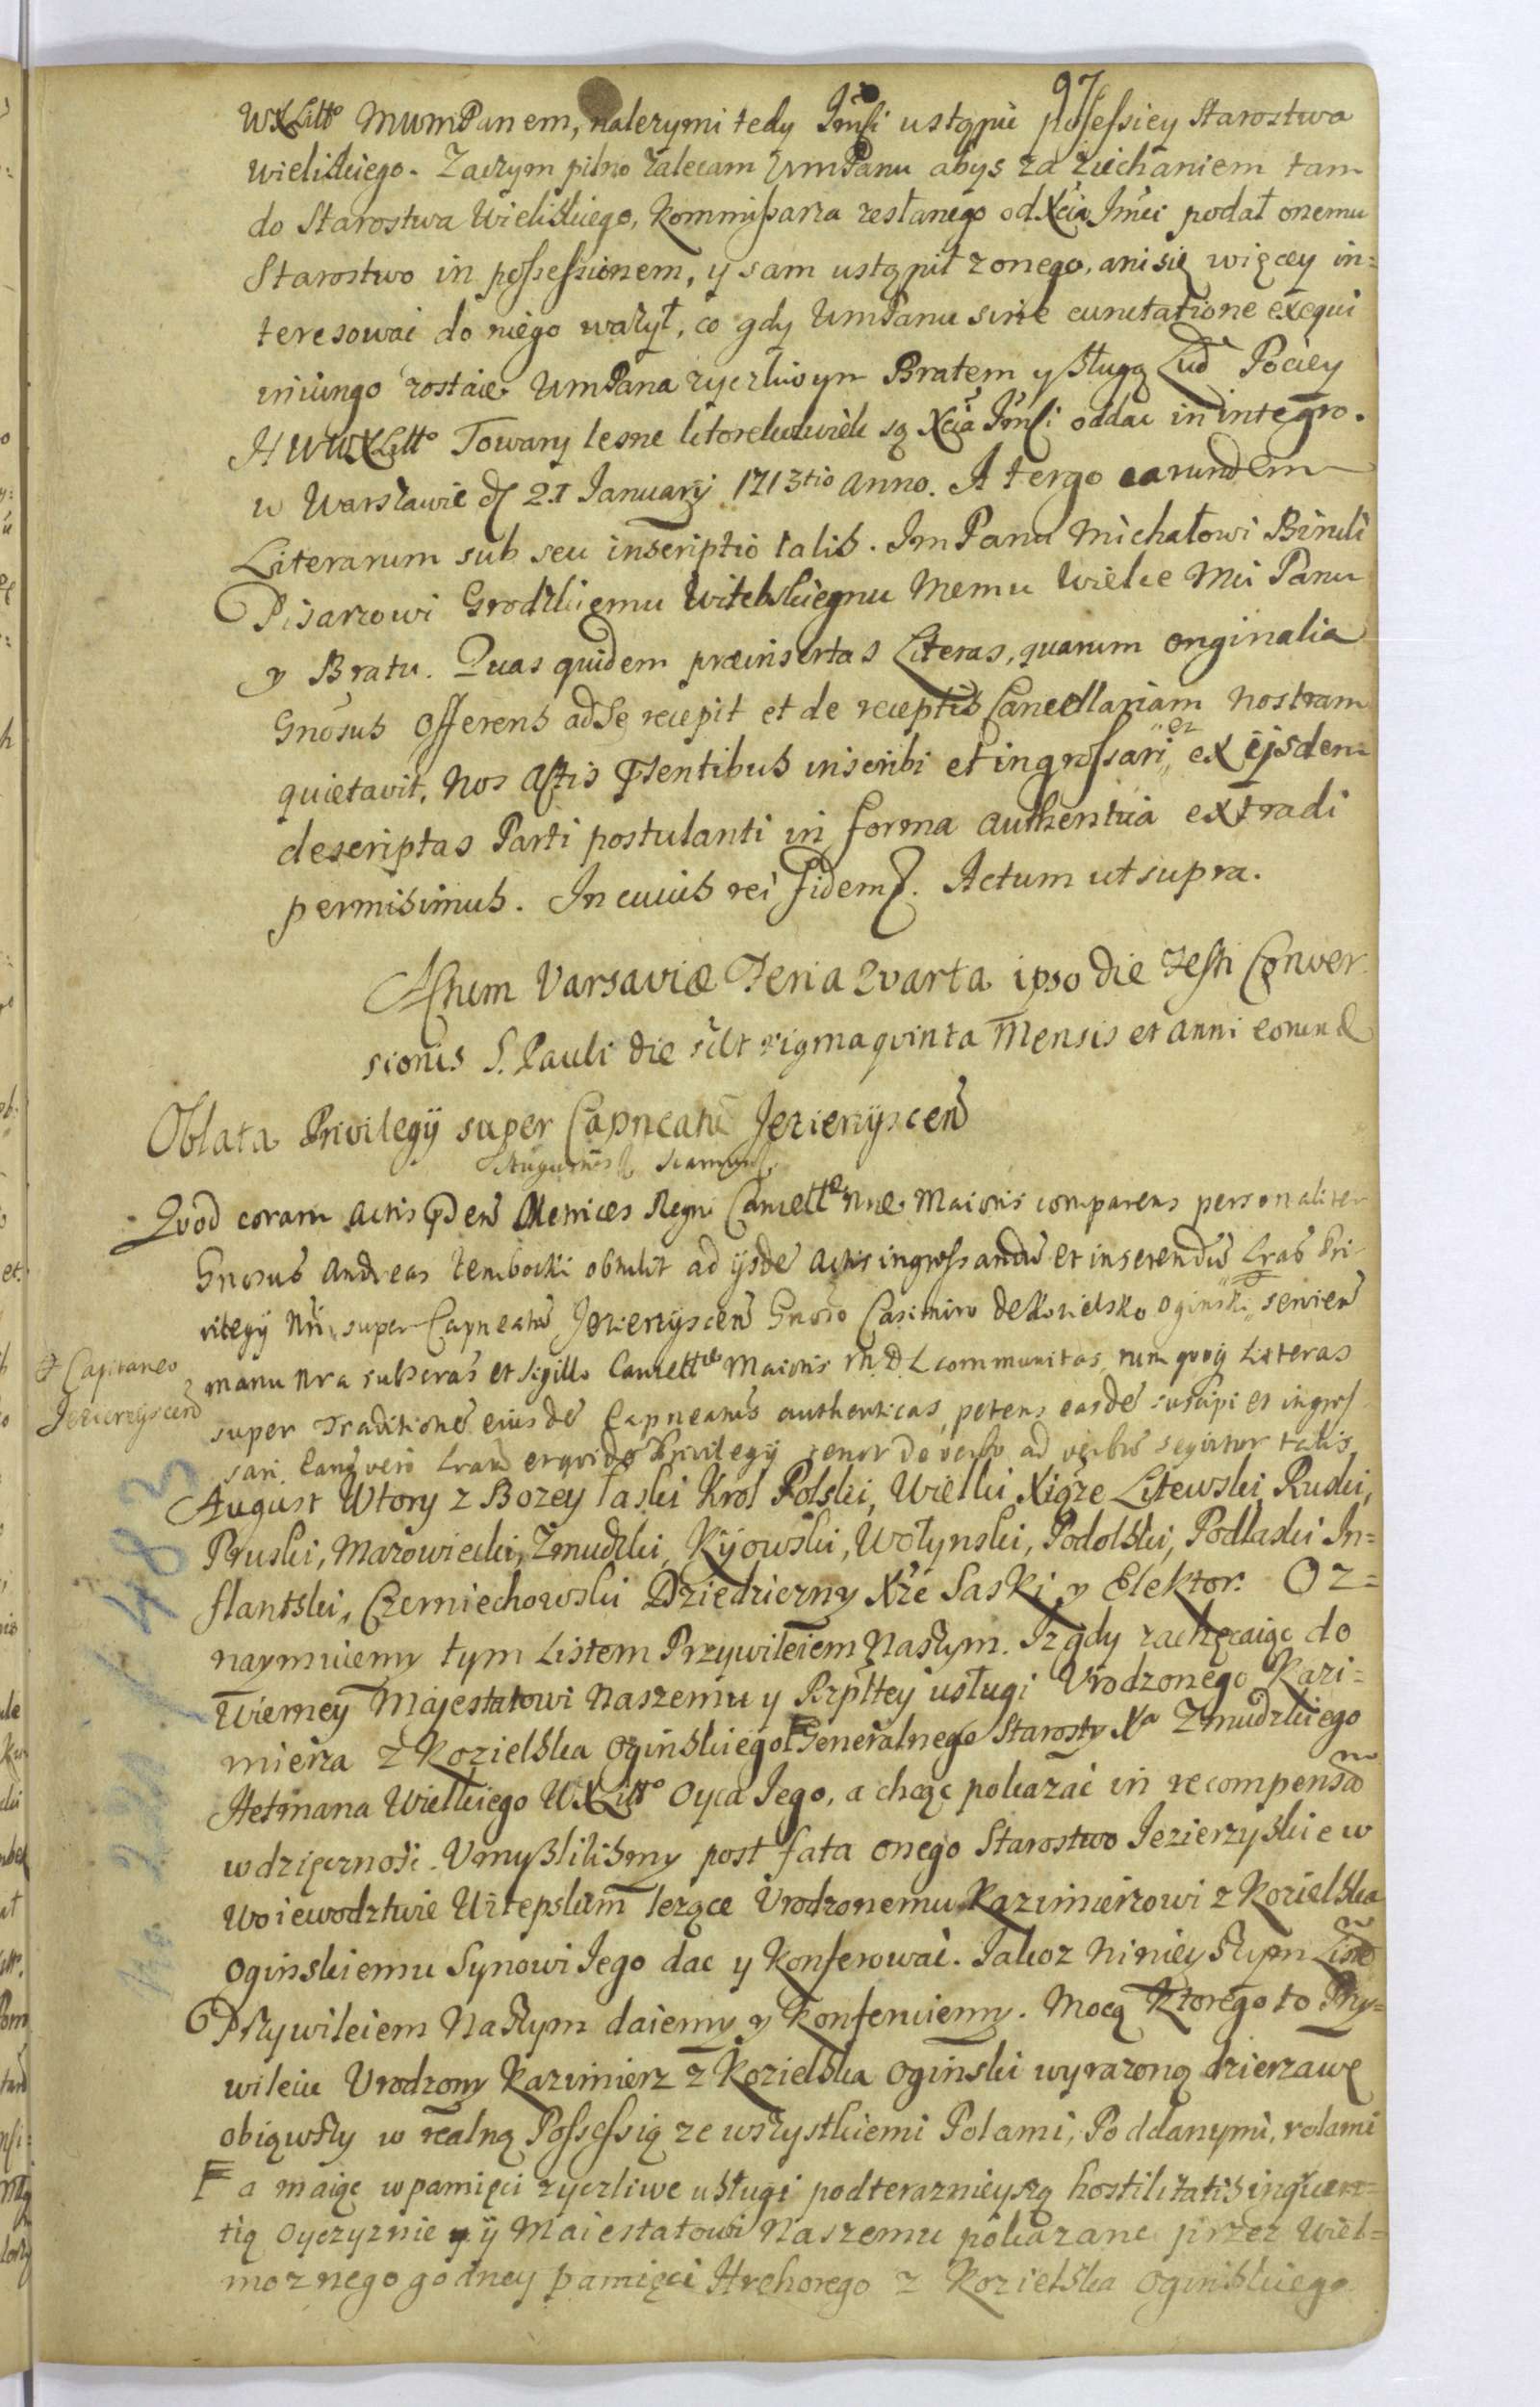 97
WXLitto MumPanem, nalezymi tedy Jmsci ustąpić possessiey Starostwa
Wieliskiego. Zaczym pilno zalecam UmPanu abyś za ziechaniem tam
do Starostwa Wieliskiego, Kommissarza zesłanego od Xcia Jmci podał onemu
Starostwo in possessionem, y sam ustąpił z onego, ani się więcey in=
teresować do niego ważył, co gdy UmPanu sine cunctatione exequi
iniungo zostaie UmPana zyczliwym Bratem y sługą Lud Pociey
HWWXLitto Towary lesne ktorekolwiek są Xcia Jmsci oddac in integro.
w Warszawie d 21 January 1713tio anno. A tergo earundem
Literarum sub seu inscriptio talis. Jm Panu Michałowi Biruli
Pisarzowi Grodzkiemu Witebskiemu Memu Wielce Mci Panu
y Bratu. Quas quidem præinsertas Literas, quarum originalia
Gnosus Offerens ad Se recepit et de receptis Cancellariam nostram
quietavit, Nos Actis pntentibus inscribi et ingrossari et ex ijsdem
descriptas Parti postulanti in forma authentica extradi
permisimus. In cuius rei fidem. Actum ut supra.
Actum Varsaviæ Feria Quarta ipso die Festi Conver
sionis S. Pauli die scilt vigmaquinta Mensis et Anni eorund
Oblata Privilegij super Capneatu Jezierzyscen
Quod coram Actis pnden Metrices Regni Cancellæ Nræ Maioris comparens personaliter
Gnosus Andreas obtulit ad ijsde Actis ingrossandu et inserendu Lras Pri
vilegij Nri super Capneatu Jezierzyscen Gnoso Casimiro de Kozielsko Oginski servien
+ Capitaneo
Jezierzyscen
manu Nra subscras et Sigillo Cancellæ Maioris M.D.L. communitas, tum quoq Literas
super Traditione eiusde Capneatus authenticas, petens easde suscipi et ingros
sari. Earuq vero Lraru erquide Privilegij tenor de verbo ad verbu sequitur talis
August Wtory z Bozey łaski Krol Polski, Wielki Xiąże Litewski, Ruski,
Pruski, Mazowiecki, Zmudzki, Kijowski, Wołynski, Podolski, Podlaski In=
flantski, Czerniechowski Dziedziczny Xże Saski y Elektor. Oz=
naymuiemy tym Listem Przywileiem Naszym. Iz gdy zachęcaiąc do
Wierney Majestatowi Naszemu y Rzpltey usługi Vrodzonego Kazi=
mierza z Kozielska Oginskiego F Generalnego Starosty Xa Zmudzkiego
Hetmana Wielkiego WXLitto Oyca Jego, a chcąc pokazać in recompensam
wdzięcznosć. Vmyslilismy post fata onego Starostwo Jezierzyskie w
Woiewodztwie Witepskim lezące Vrodzonemu Kazimierzowi z Kozielska
Oginskiemu Synowi Jego dac y Konferowac. Jakoz Ninieyszym Liste
Przywileiem Naszym daiemy y Konferuiemy. Mocą Ktorego to Przy=
wileiu Vrodzony Kazimierz z Kozielska Oginski wyrazoną dzierzawę
obiąwszy w realną Possessią ze wszystkiemi Polami, Poddanymi, rolami
F a maiąc w pamięci zyczliwe usługi pod teraznieyszą hostilitatis inquen=
tią Oyczyznie y ÿ Maiestatowi Naszemu pokazane przez Wiel=
moznego godney pamięci Hrehorego z Kozielska Oginskiego